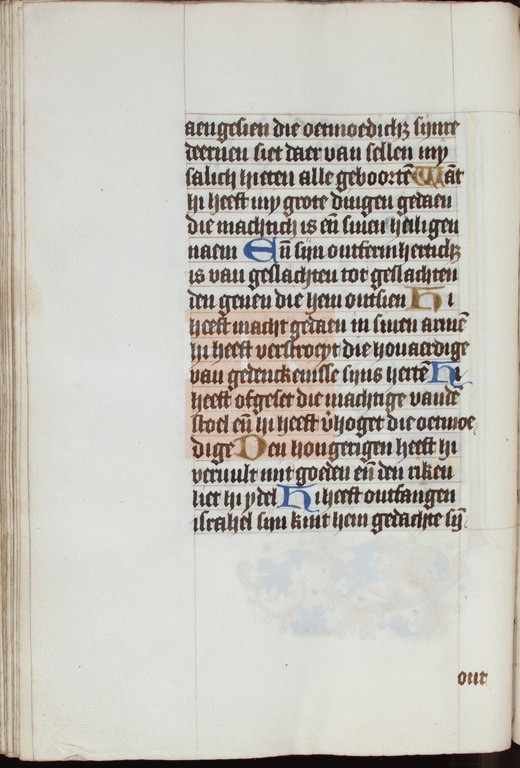 aengesien die oetmoedicheꝫ sijnre
deernen siet daer van sellen my
salich hieten alle geboortē Wāt
hi heeft my grote dingen gedaen
die machtich is eñ sinen heiligen
naem Eñ sijn ontfermherticheꝫ
is van geslachten tot geslachten
den genen die hem ontsien Hi
heeft macht gedaen in sinen armē
hi heeft verstroeyt die houaerdige
van gedenckenisse sijns hertē Hi
heeft ofgeset die machtige vandē
stoel eñ hi heeft v̄hoget die oetmoe
dige Den hongerigen heeft hi
veruult mit goeden eñ den riken
liet hi ydel Hi heeft ontfangen
israhel sijn kint hem gedachte sij̄
ont